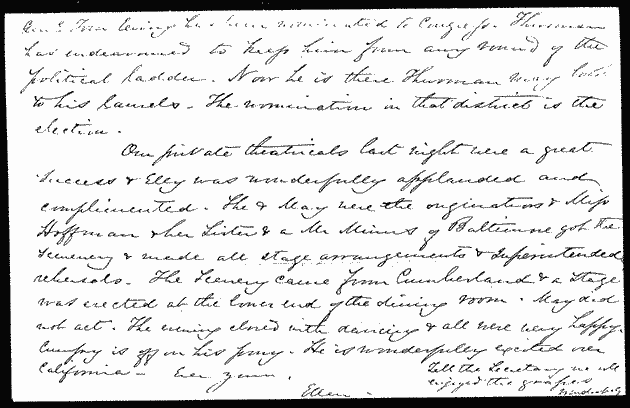 Genl. Tom Ewing has been nominated to Congress. Thurman
has endeavored to keep him from any round of the
political ladder. Now he is there Thurman may look
to his laurels. The nomination in that district is the
election.
Our private theatricals last night were a great
success & Elly was wonderfully applauded and
complimented. She & May were the originators & Miss
Hoffman & her Sister & a Mr of Baltimore got the
Scenery & made all stage arrangements & Superintended
rehersals. The Scenery came from Cumberland & a Stage
was erected at the lower end of the dining room. May did
not act. The evening closed with dancing & all were very happy.
Cumpy is off on his pony. He is wonderfully excited over
California - Ever yours,
Ellen.
Tell the Secretary we all
enjoyed the grapes